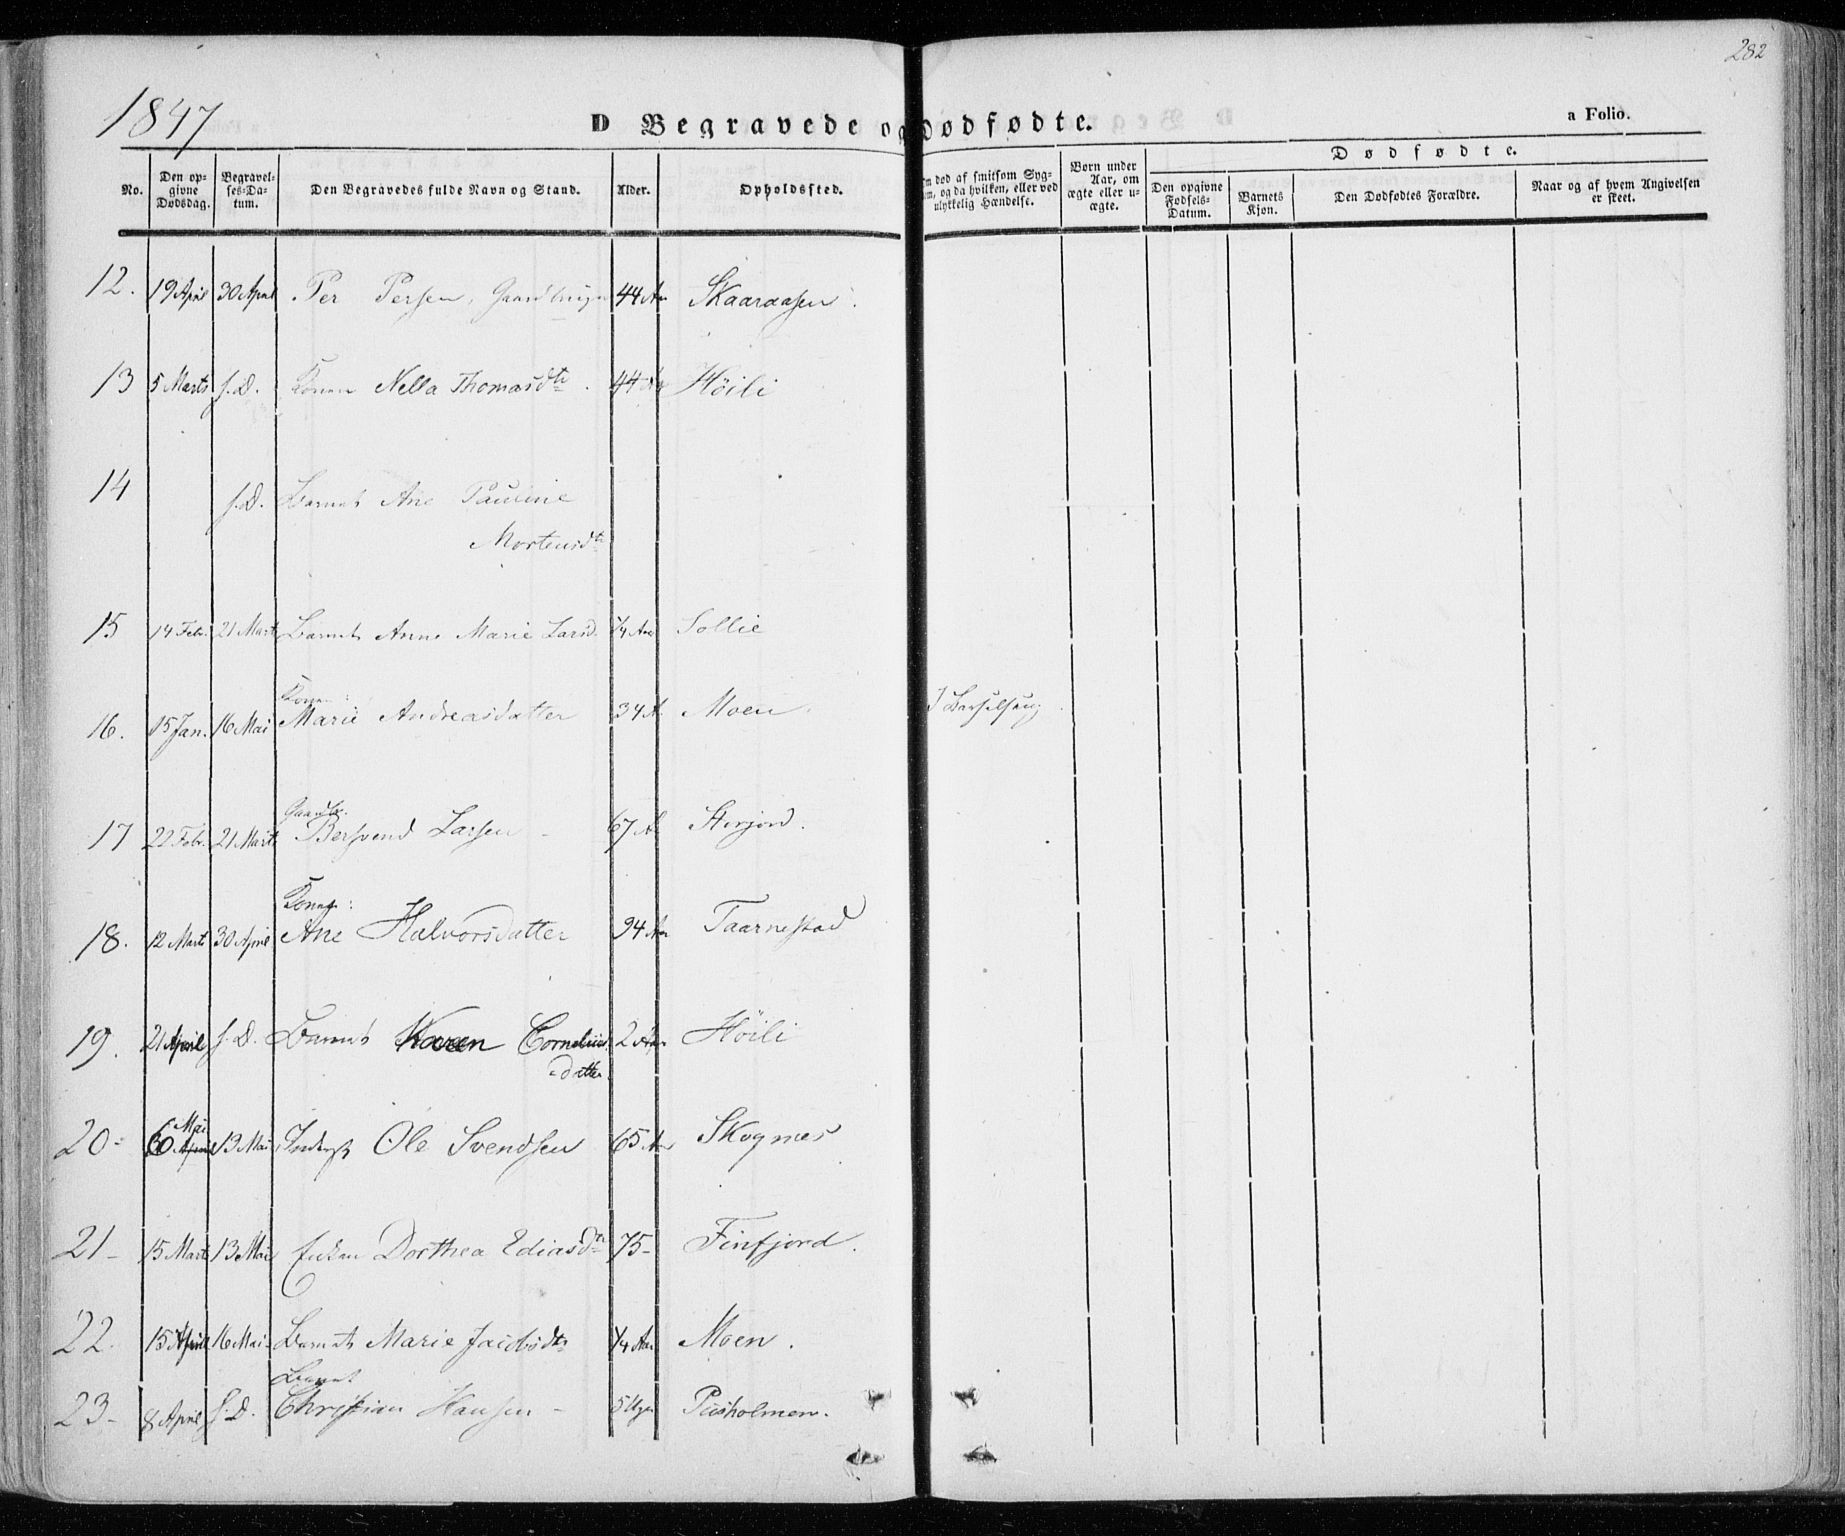 282
1847
D Begravede og Dødfødte.
a Folio.
No.
Den opgivne Dødsdag.
Begravelses-Datum.
Den Begravedes fulde Navn og Stand.
Alder.
Opholdssted.
m død af smitsom Syg-
m, og da hvilken, eller ved
ulykkelig Hændelse.
Børn under
Aar, om
ægte eller u-
ægte.
Dødfødte.
Den opgivne Fødsels-Datum.
Barnets Kjøn.
Den Dødfødtes Forældre.
Naar og af hvem Angivelsen er skeet.
12. 19 April 30 April Per Persen, 44 Aar Skaaraasen.
13 5 Marts s. D. Konen Nella Thomasdtr. 44 Aar Höili
14 s. D. Barnet Ane Pauline
Mortensdtr
15 14 Febr. 21 Marts Barnet Anne Marie Larsd. 1/4 Aar Sollie
Konen:
16. 15 Jan. 16 Mai Marie Andreasdatter 34 A. Moen. I Barselseng
Gaardbr.
17 22 Febr. 21 Marts Bersvend Larsen - 67 Aar
Kone:
18. 12 Marts 30 April Ane Halvorsdatter 94 Aar Taarnestad
19. 21 April s. D. Barnet Karen Cornelius
datter. 2 Aar Höili
Mai
20- 6 April 13 Mai Inderst Ole Svendsen 65 Aar Skognes
21- 15 Marts 13 Mai Enken Dorthea Ediasdtr 75- Finfjord.
22. 15 April 16 Mai Barnet Marie Jacobsdtr 1/4 Aar Moen.
Barnet
23- 8 April s. D. Christian Hansen - 5 Uger